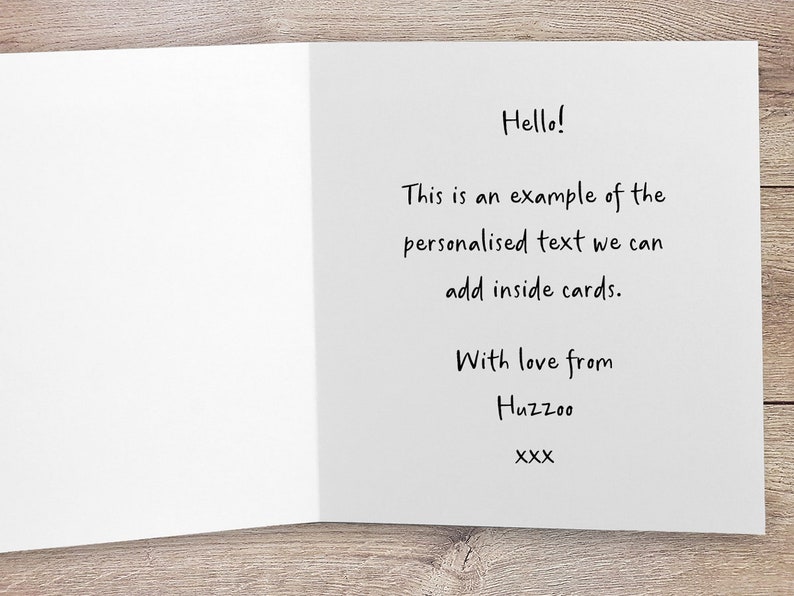 Hello!
This is an example of the
personalised text we can
add inside cards.
With love from
Huzzoo
xxx